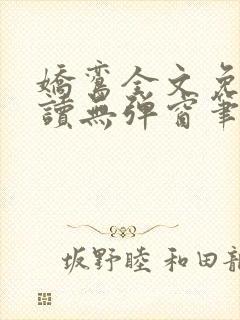 嬌鸞全文免
讀無彈窗筆
坂野睦 和田龍